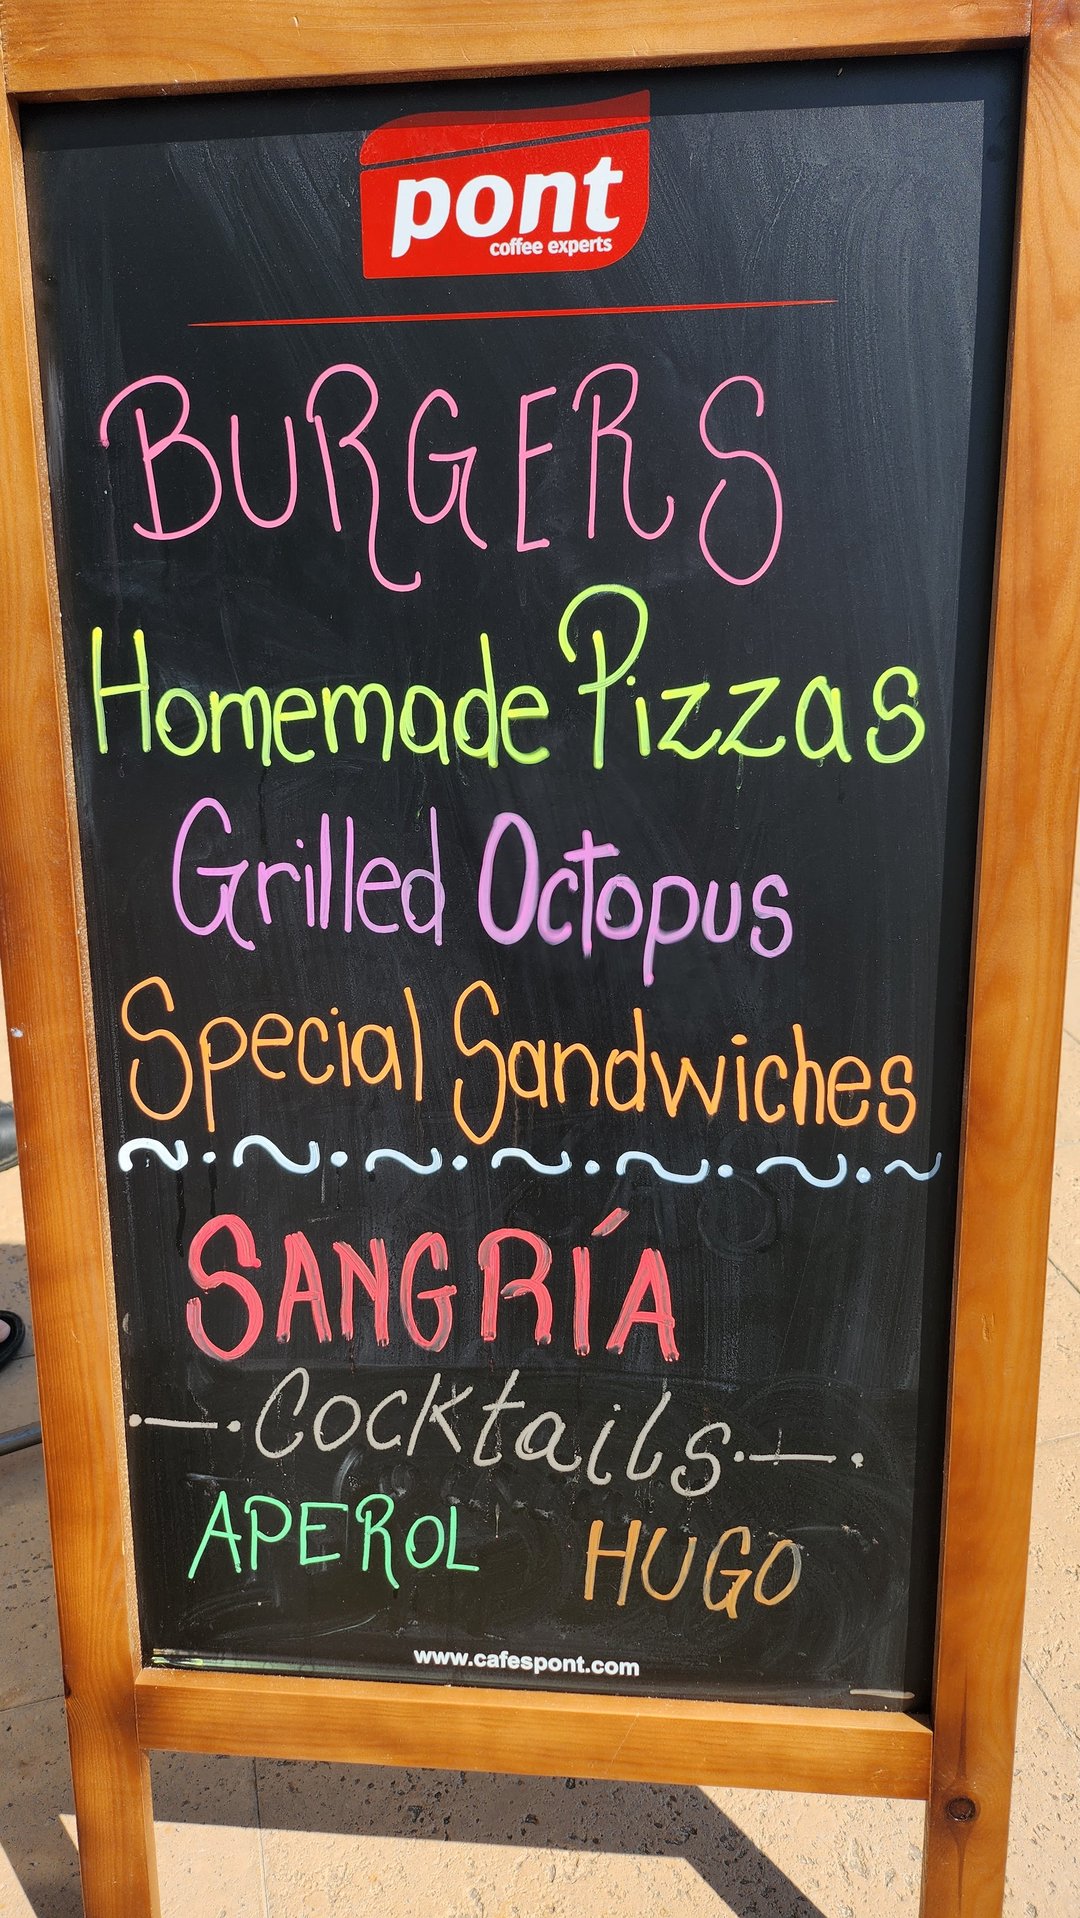 pont
coffee experts
BURGERS
Homemade Pizzas
Grilled Octopus
Special Sandwiches
SANGRÍA
Cocktails
APEROL HUGO
www.cafespont.com